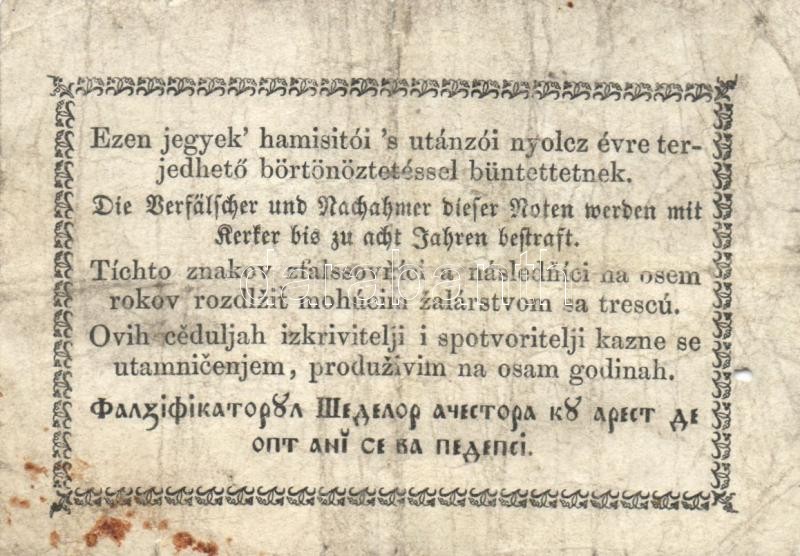 Ezen jegyek’ hamisitói ’s utánzói nyolcz évre ter-
jedhető börtönöztetéssel büntettetnek.
Die Verfälscher und Nachahmer dieser Noten werden mit
Kerker bis zu acht Jahren bestraft.
Tíchto znakov zfalssovňíci a následňíci na osem
rokov rozdlžiť mohúcim žalárstvom sa trescú.
Ovih cěduljah izkrivitelji i spotvoritelji kazne se
utamničenjem, produživim na osam godinah.
Фалꙃіфікаторꙋл Шеделор ачестора кꙋ арест де
опт анĭ се ва педепсі.